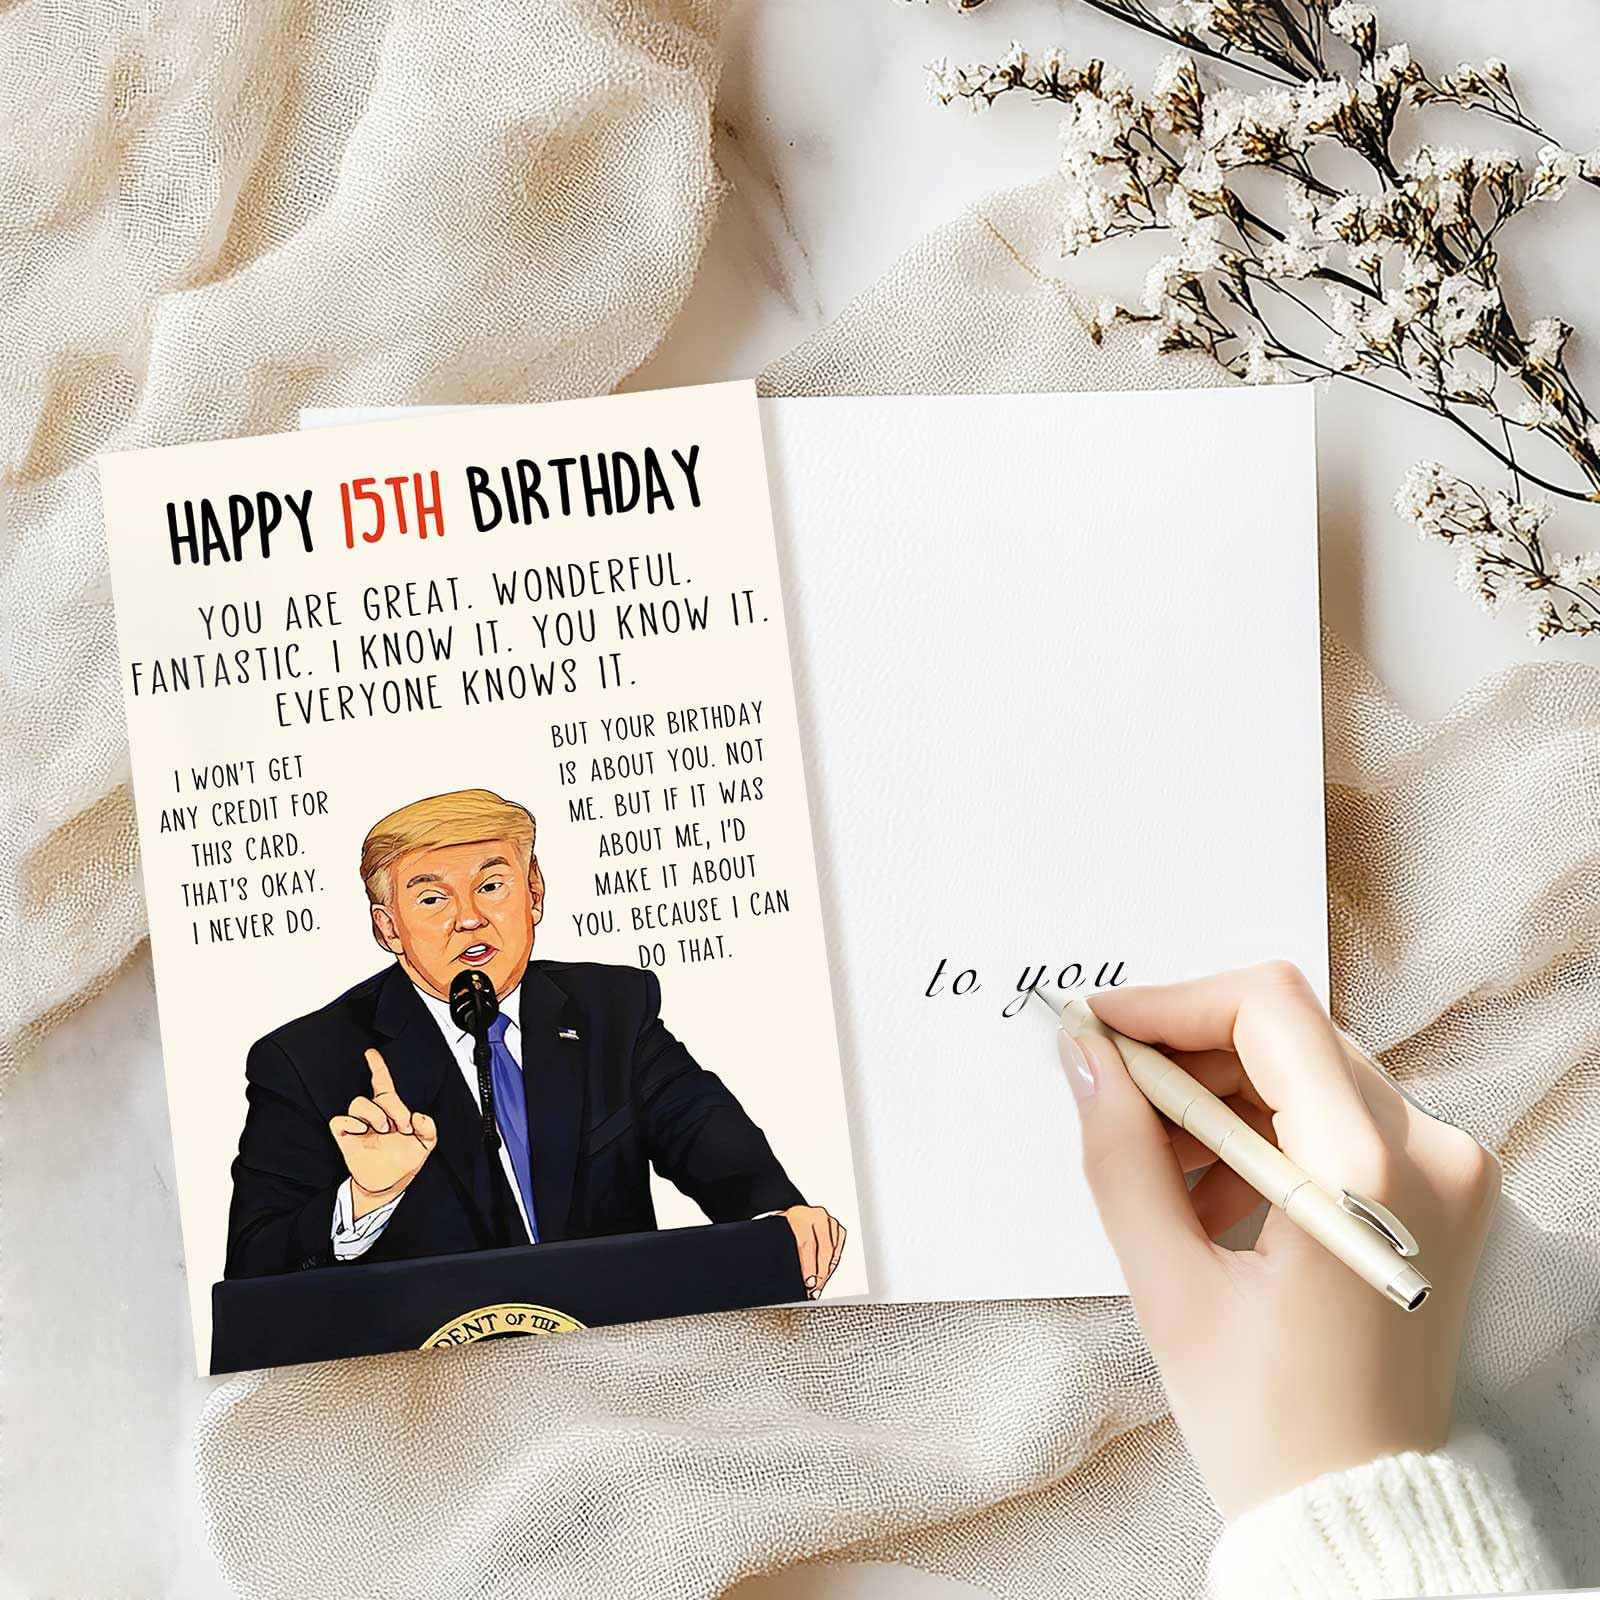 HAPPY 15TH BIRTHDAY
YOU ARE GREAT. WONDERFUL.
FANTASTIC. I KNOW IT. YOU KNOW IT.
EVERYONE KNOWS IT.
I WON'T GET
ANY CREDIT FOR
THIS CARD.
THAT'S OKAY.
I NEVER DO.
BUT YOUR BIRTHDAY
IS ABOUT YOU. NOT
ME. BUT IF IT WAS
ABOUT ME, I'D
MAKE IT ABOUT
YOU. BECAUSE I CAN
DO THAT.
DENT OF THE
to you